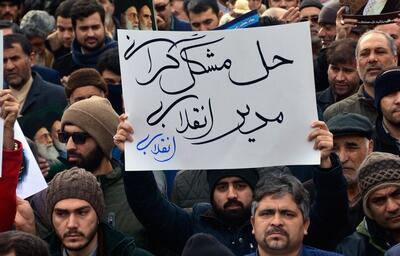 حل مشکل گرانی
مدیر انقلابی
انقلابی